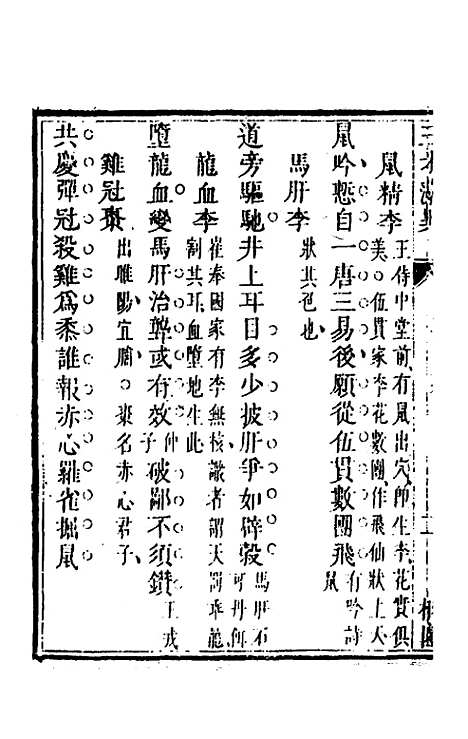 鼠精李 王侍中堂前有鼠出穴卽生李花實俱
美○伍貫家李花數團作飛仙狀上天
鼠吟慙自一唐三易後願從伍貫數團飛 有吟詩
鼠
馬肝李 狀其色也
道旁驅馳井上耳目多少披肝爭如辟穀 馬肝石
可丹
龍血李 崔奉國家有李無核識者謂天罰乖龍
割其耳血墮地生此
墮龍血變馬肝治聾或有效仲子破鄙不須鑽 王戎
雞冠棗 出睢陽宜周○棗名赤心君子
共慶彈冠殺雞爲黍誰報赤心羅雀掘鼠